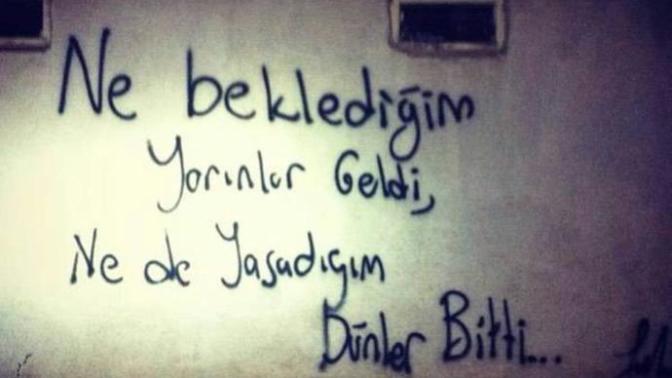 Ne beklediğim
Yarınlar Geldi,
Ne de Yaşadığım
Dünler Bitti...